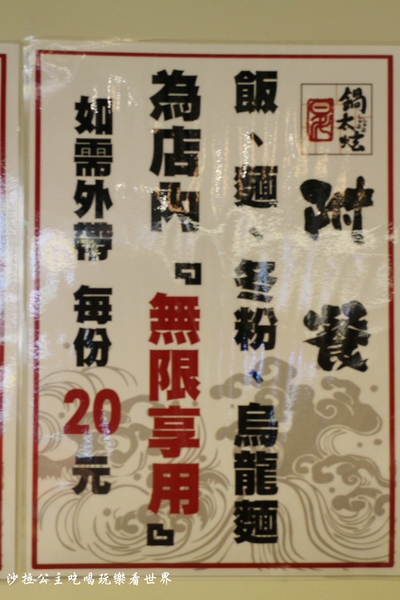 鍋太炫
附餐
飯、麵、冬粉、烏龍麵
為店內『無限享用』
如需外帶 每份20元
沙拉公主吃喝玩樂看世界